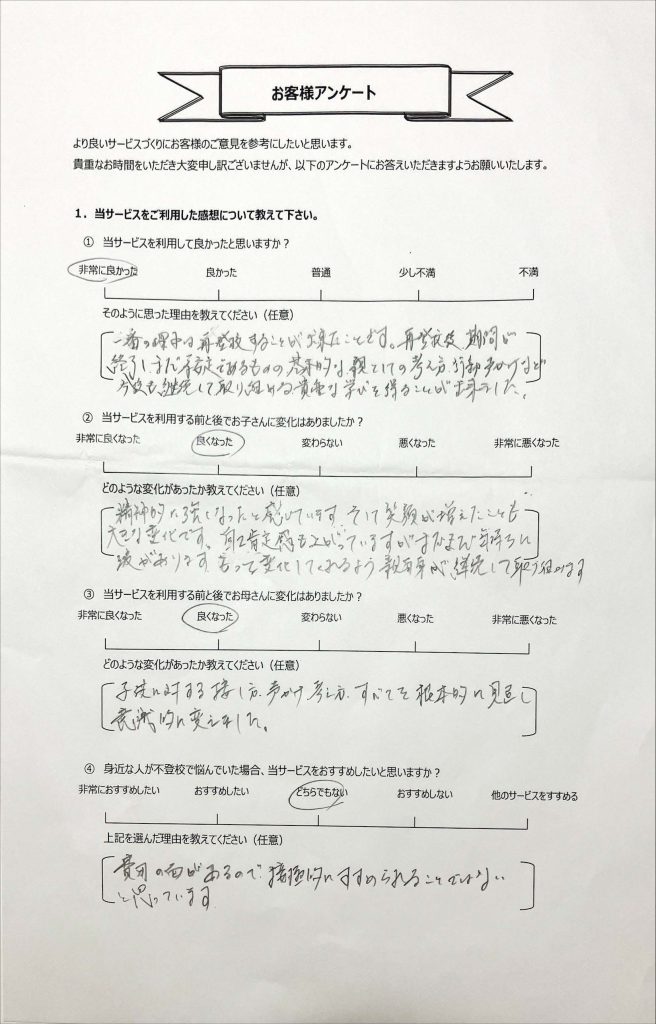 お客様アンケート
より良いサービスづくりにお客様のご意見を参考にしたいと思います。
貴重なお時間をいただき大変申し訳ございませんが、以下のアンケートにお答えいただきますようお願いいたします。
1．当サービスをご利用した感想について教えて下さい。
① 当サービスを利用して良かったと思いますか？
非常に良かった 良かった 普通 少し不満 不満
そのように思った理由を教えてください（任意）
一番の理由は再登校することが出来たことです。再登校後 期間が
終了し、まだ不安定であるものの基本的な親としての考え方、行動 声かけなど
今後も継続して取り組める貴重な学びを得ることが出来ました。
② 当サービスを利用する前と後でお子さんに変化はありましたか？
非常に良くなった 良くなった 変わらない 悪くなった 非常に悪くなった
どのような変化があったか教えてください（任意）
精神的に強くなったと感じています。そして笑顔が増えたことも
大きな変化です。自己肯定感も上がっていますがまだまだ気持ちに
波があります もっと変化してくれるよう親自身が継続して取り組みます
③ 当サービスを利用する前と後でお母さんに変化はありましたか？
非常に良くなった 良くなった 変わらない 悪くなった 非常に悪くなった
どのような変化があったか教えてください（任意）
子供に対する接し方、声かけ 考え方、すべてを根本的に見直し
意識的に変えました。
④ 身近な人が不登校で悩んでいた場合、当サービスをおすすめしたいと思いますか？
非常におすすめしたい おすすめしたい どちらでもない おすすめしない 他のサービスをすすめる
上記を選んだ理由を教えてください（任意）
費用の面があるので、積極的にすすめられることではない
と思っています